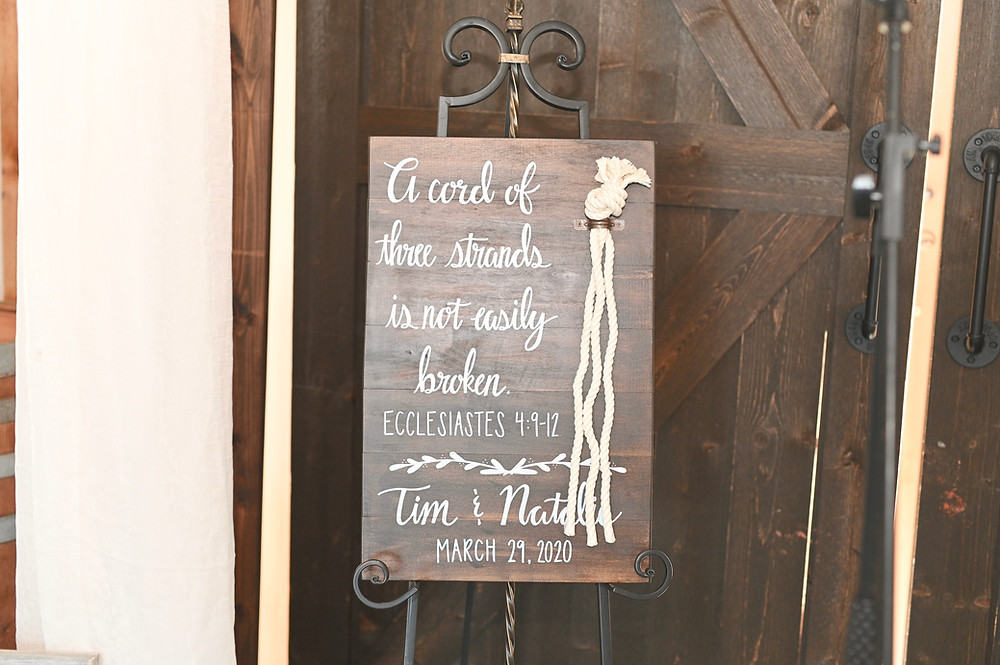 A cord of
three strands
is not easily
broken.
ECCLESIASTES 4:9-12
Tim & Natalie
MARCH 29, 2020